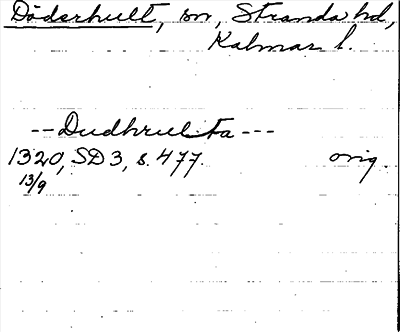 Döderhult, sn, Stranda hd,
Kalmar l.
--Dudhrulta---
1320, SD 3, s. 477. orig.
13/9